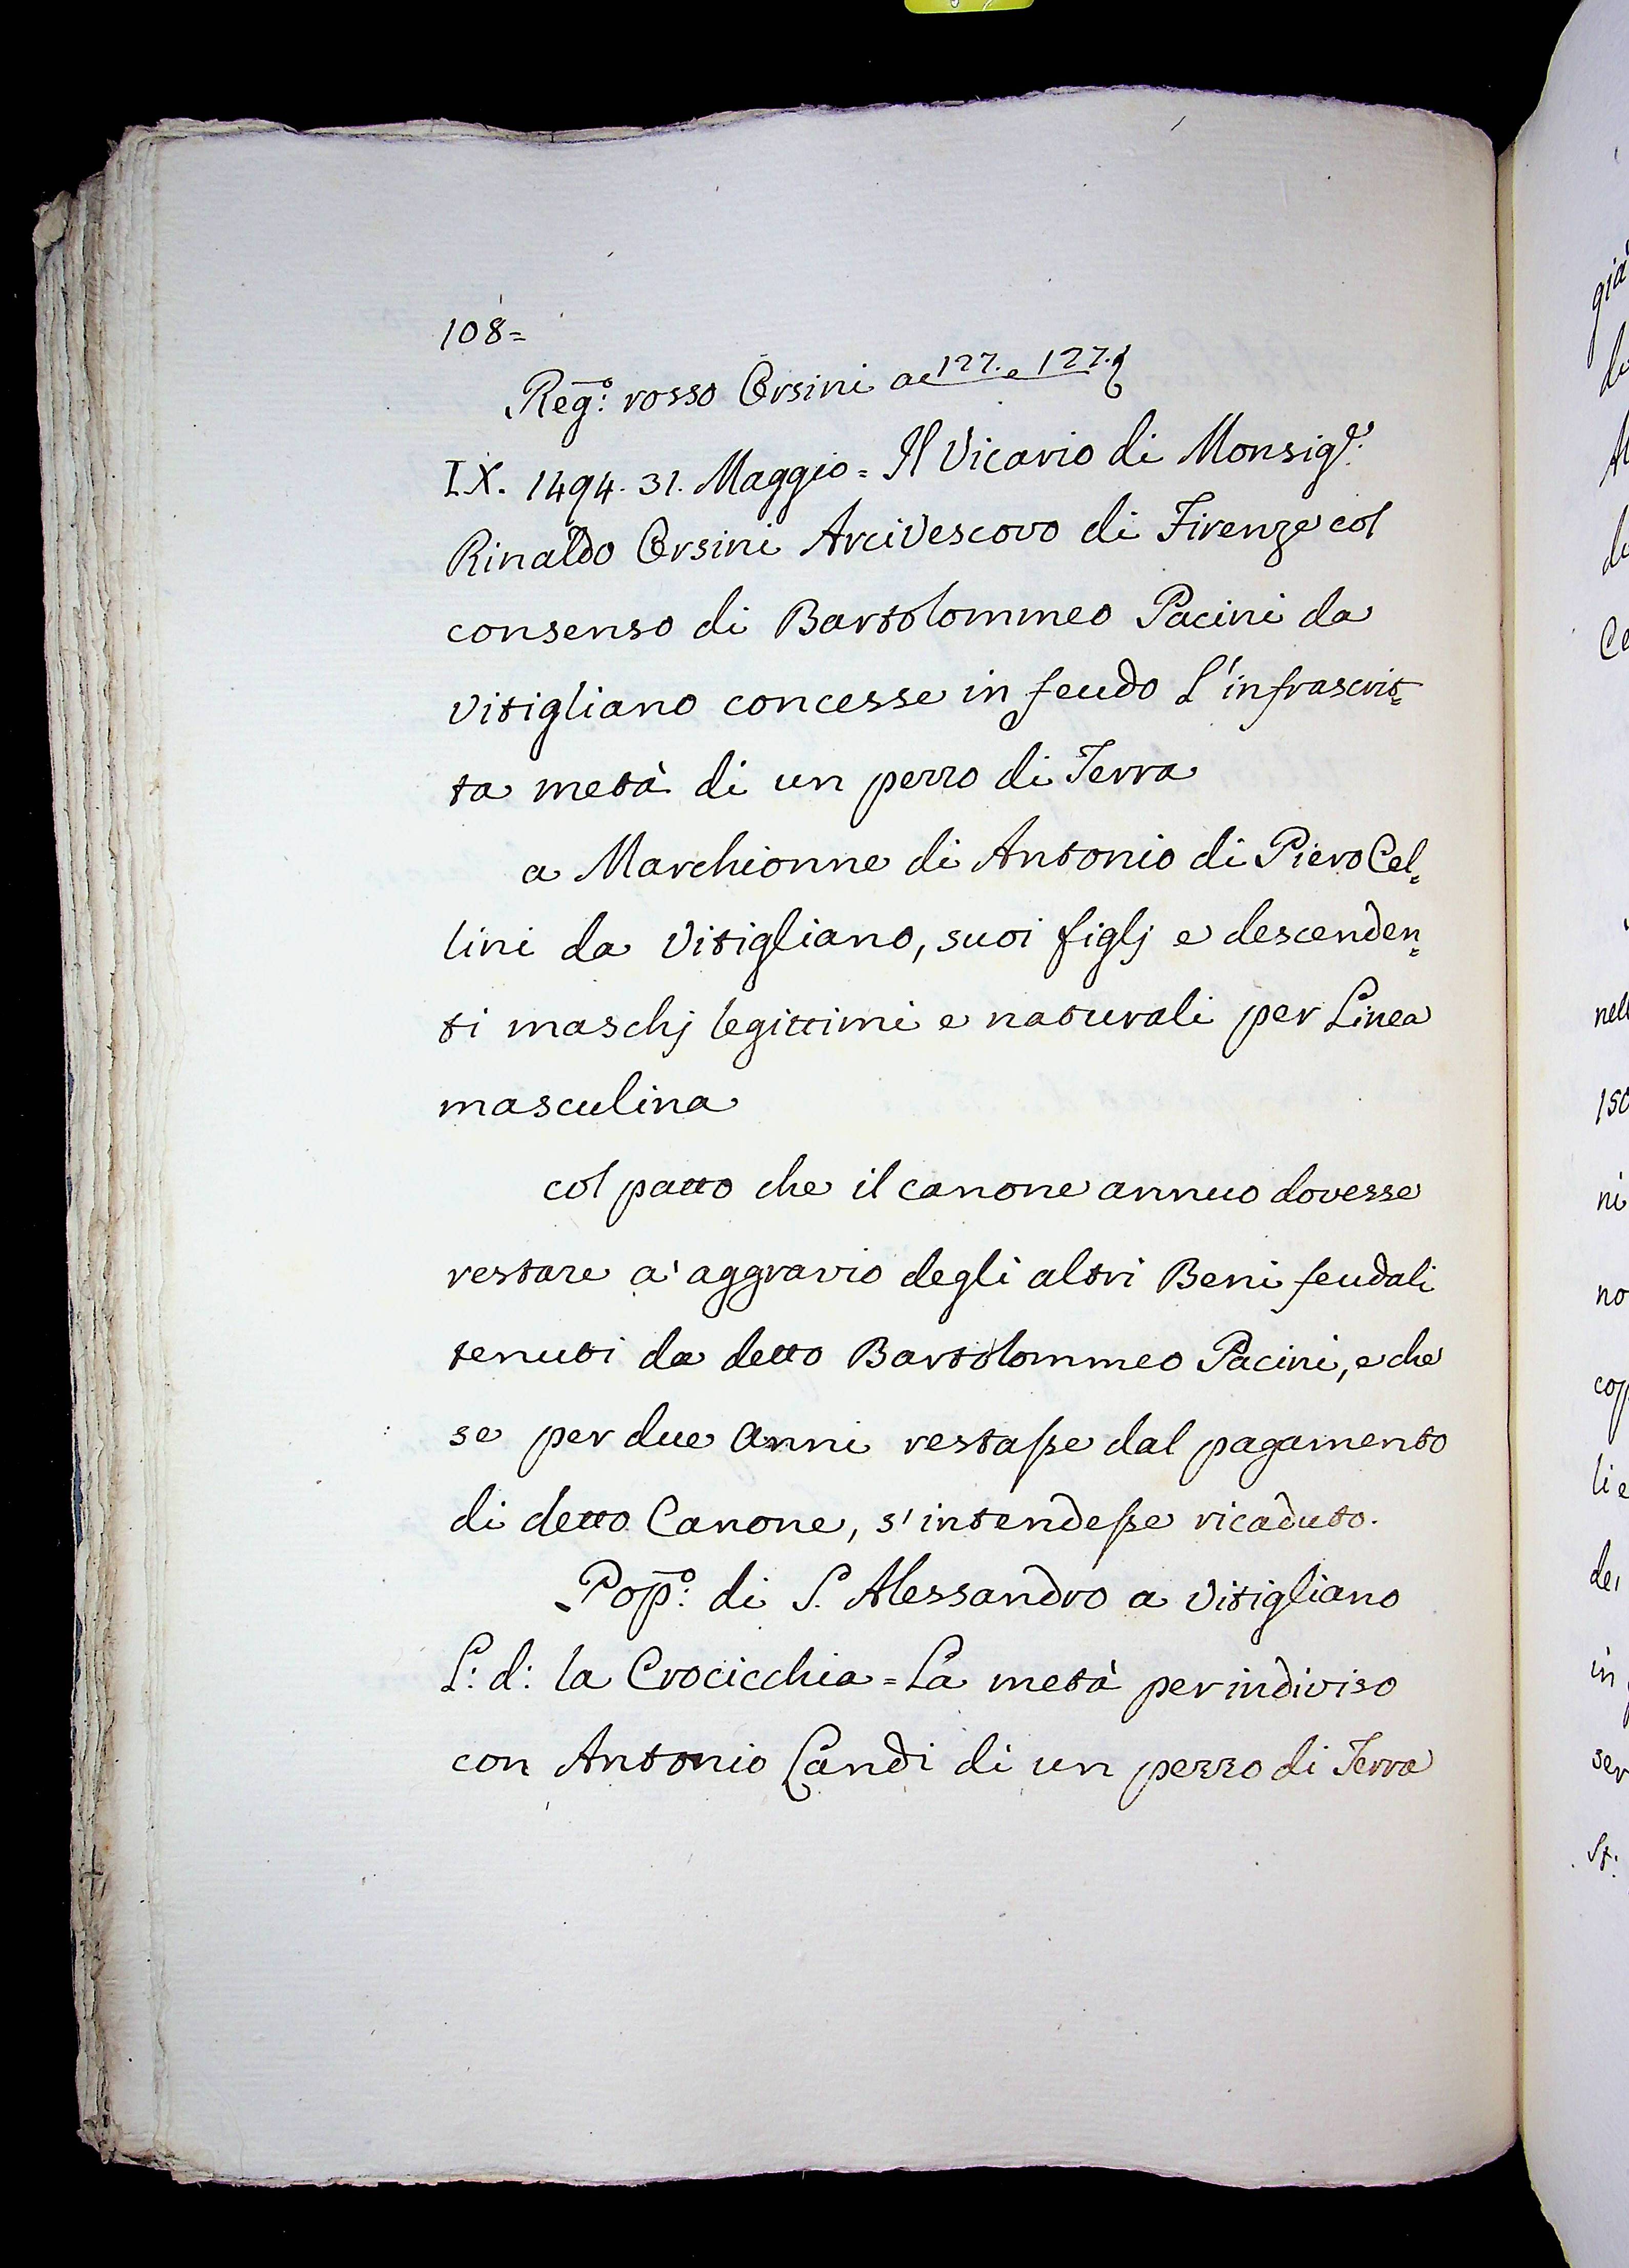 108=
Reg.º rosso Orsini ac 127. e 127.
IX. 1494. 31. Maggio = Il Vicario di Monsig.r
Rinaldo Orsini Arcivescovo di Firenze col
consenso di Bartolommeo Pacini da
Vitigliano concesse in feudo L'infrascrit=
ta metà di un pezzo di Terra
a Marchionne di Antonio di Piero Cel=
lini da Vitigliano, suoi figlj e descenden=
ti maschj legittimi e naturali per Linea
masculina
col patto che il canone annuo dovesse
restare a' aggravio degli altri Beni feudali
tenuti da detto Bartolommeo Pacini, e che
se per due Anni restasse dal pagamento
di detto Canone, s'intendesse ricaduto.
Pop.º di S. Alessandro a Vitigliano
L: d: la Crocicchia = La metà per indiviso
con Antonio Landi di un pezzo di Terra